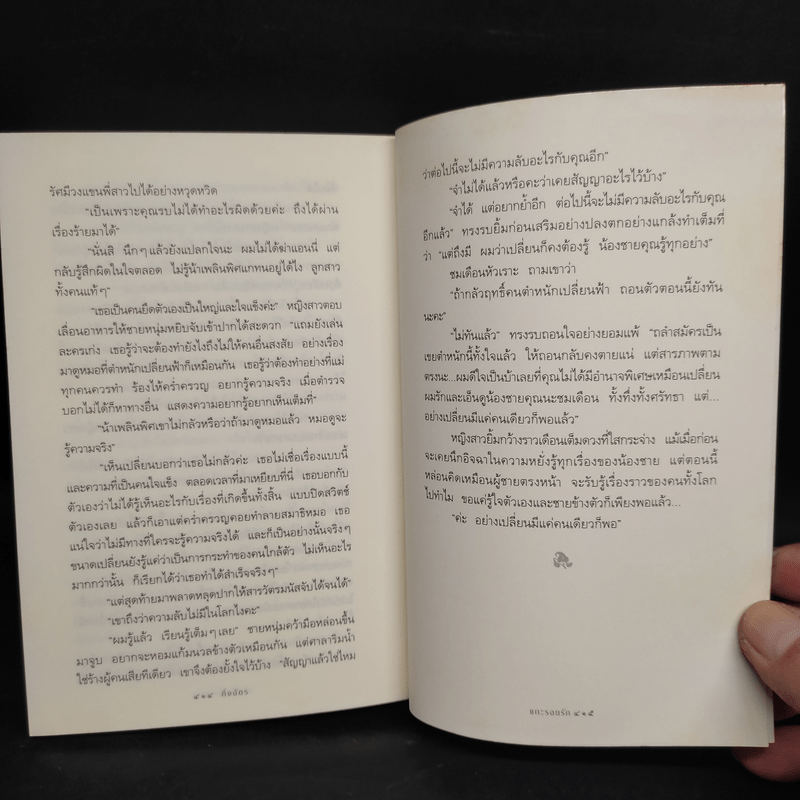 รัศมีวงแขนพี่สาวไปได้อย่างหวุดหวิด
"เป็นเพราะคุณรบไม่ได้ทำอะไรผิดด้วยค่ะ ถึงได้ผ่าน
เรื่องร้ายมาได้"
"นั่นสิ นึกๆ แล้วยังแปลกใจนะ ผมไม่ได้ฆ่าแอนนี่ แต่
กลับรู้สึกผิดในใจตลอด ไม่รู้น้าเพลินพิศแกทนอยู่ได้ไง ลูกสาว
ทั้งคนแท้ๆ"
"เธอเป็นคนยึดตัวเองเป็นใหญ่และใจแข็งค่ะ" หญิงสาวตอบ
เลื่อนอาหารให้ชายหนุ่มหยิบจับเข้าปากได้สะดวก "แถมยังเล่น
ละครเก่ง เธอรู้ว่าจะต้องทำยังไงถึงไม่ให้คนอื่นสงสัย อย่างเรื่อง
มาดูหมอที่ตำหนักเปลี่ยนฟ้าก็เหมือนกัน เธอรู้ว่าต้องทำอย่างที่แม่
ทุกคนควรทำ ร้องไห้คร่ำครวญ อยากรู้ความจริง เมื่อตำรวจ
บอกไม่ได้ก็หาทางอื่น แสดงความอยากรู้อยากเห็นเต็มที่"
"น้าเพลินพิศเขาไม่กลัวหรือว่าถ้ามาดูหมอแล้ว หมอดูจะ
รู้ความจริง"
"เห็นเปลี่ยนบอกว่าเธอไม่กลัวค่ะ เธอไม่เชื่อเรื่องแบบนี้
และความที่เป็นคนใจแข็ง ตลอดเวลาที่มาเหยียบที่นี่ เธอบอกกับ
ตัวเองว่าไม่ได้รู้เห็นอะไรกับเรื่องที่เกิดขึ้นทั้งสิ้น แบบปิดสวิตช์
ตัวเองเลย แล้วก็เอาแต่คร่ำครวญคอยทำลายสมาธิหมอ เธอ
แน่ใจว่าไม่มีทางที่ใครจะรู้ความจริงได้ และก็เป็นอย่างนั้นจริงๆ
ขนาดเปลี่ยนยังรู้แค่ว่าเป็นการกระทำของคนใกล้ตัว ไม่เห็นอะไร
มากกว่านั้น ก็เรียกได้ว่าเธอทำได้สำเร็จจริงๆ"
"แต่สุดท้ายมาพลาดหลุดปากให้สารวัตรมนัสจับได้จนได้"
"เขาถึงว่าความลับไม่มีในโลกไงคะ"
"ผมรู้แล้ว เรียนรู้เต็มๆ เลย" ชายหนุ่มคว้ามือหล่อนขึ้น
มาจูบ อยากจะหอมแก้มนวลข้างนั้นเหมือนกัน แต่ศาลาริมน้ำ
ใช่ร้างผู้คนเสียทีเดียว เขาจึงต้องยั้งใจไว้บ้าง "สัญญาแล้วใช่ไหม
๔๑๔ กิ่งฉัตร
ว่าต่อไปนี้จะไม่มีความลับอะไรกับคุณอีก"
"จำไม่ได้แล้วหรือคะว่าเคยสัญญาอะไรไว้บ้าง"
"จำได้ แต่อยากย้ำอีก ต่อไปนี้จะไม่มีความลับอะไรกับคุณ
อีกแล้ว" ทรงรบยิ้มก่อนเสริมอย่างปลงตกอย่างแกล้งทำเต็มที่
ว่า "แต่ถึงมี ผมว่าเปลี่ยนก็คงต้องรู้ น้องชายคุณรู้ทุกอย่าง"
ชมเดือนหัวเราะ ถามเขาว่า
"ถ้ากลัวฤทธิ์คนตำหนักเปลี่ยนฟ้า ถอนตัวตอนนี้ยังทัน
นะคะ"
"ไม่ทันแล้ว" ทรงรบถอนใจอย่างยอมแพ้ "ถลำสมัครเป็น
เขยตำหนักนี้ทั้งใจแล้ว ให้ถอนกลับคงตายแน่ แต่สารภาพตาม
ตรงนะ...ผมดีใจเป็นบ้าเลยที่คุณไม่ได้มีอำนาจพิเศษเหมือนเปลี่ยน
ผมรักและเอ็นดูน้องชายคุณนะชมเดือน ทั้งทึ่งทั้งศรัทธา แต่...
อย่างเปลี่ยนมีแค่คนเดียวก็พอแล้ว"
หญิงสาวยิ้มกว้างราวเดือนเต็มดวงที่ใสกระจ่าง แม้เมื่อก่อน
จะเคยนึกอิจฉาในความหยั่งรู้ทุกเรื่องของน้องชาย แต่ตอนนี้
หล่อนคิดเหมือนผู้ชายตรงหน้า จะรับรู้เรื่องราวของคนทั้งโลก
ไปทำไม ขอแค่รู้ใจตัวเองและชายข้างตัวก็เพียงพอแล้ว...
"ค่ะ อย่างเปลี่ยนมีแค่คนเดียวก็พอ"
แกะรอยรัก ๔๑๕